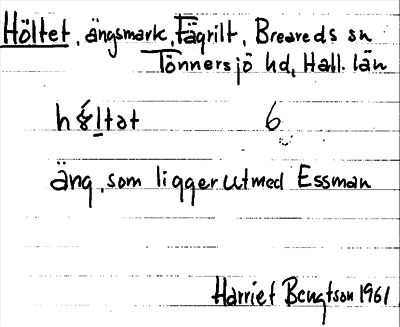 Höltet, ängsmark, Fägrilt, Breareds sn
Tönnersjö hd, Hall. län
hȣ́ltət 6
äng, som ligger utmed Essman
Harriet Bengtson 1961